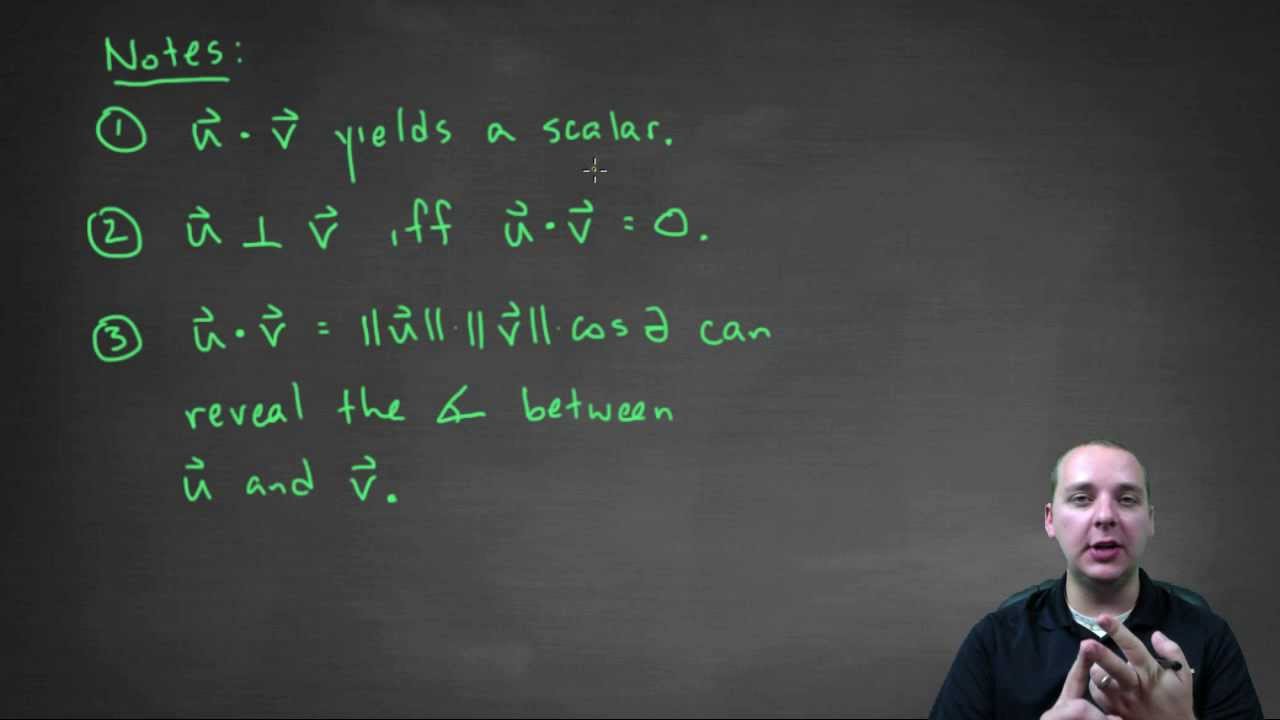 Notes:
① u⃗ · v⃗ yields a scalar.
② u⃗ ⊥ v⃗ iff u⃗ · v⃗ = 0.
③ u⃗ · v⃗ = ||u⃗|| · ||v⃗|| · cos ∂ can
reveal the ∡ between
u⃗ and v⃗.